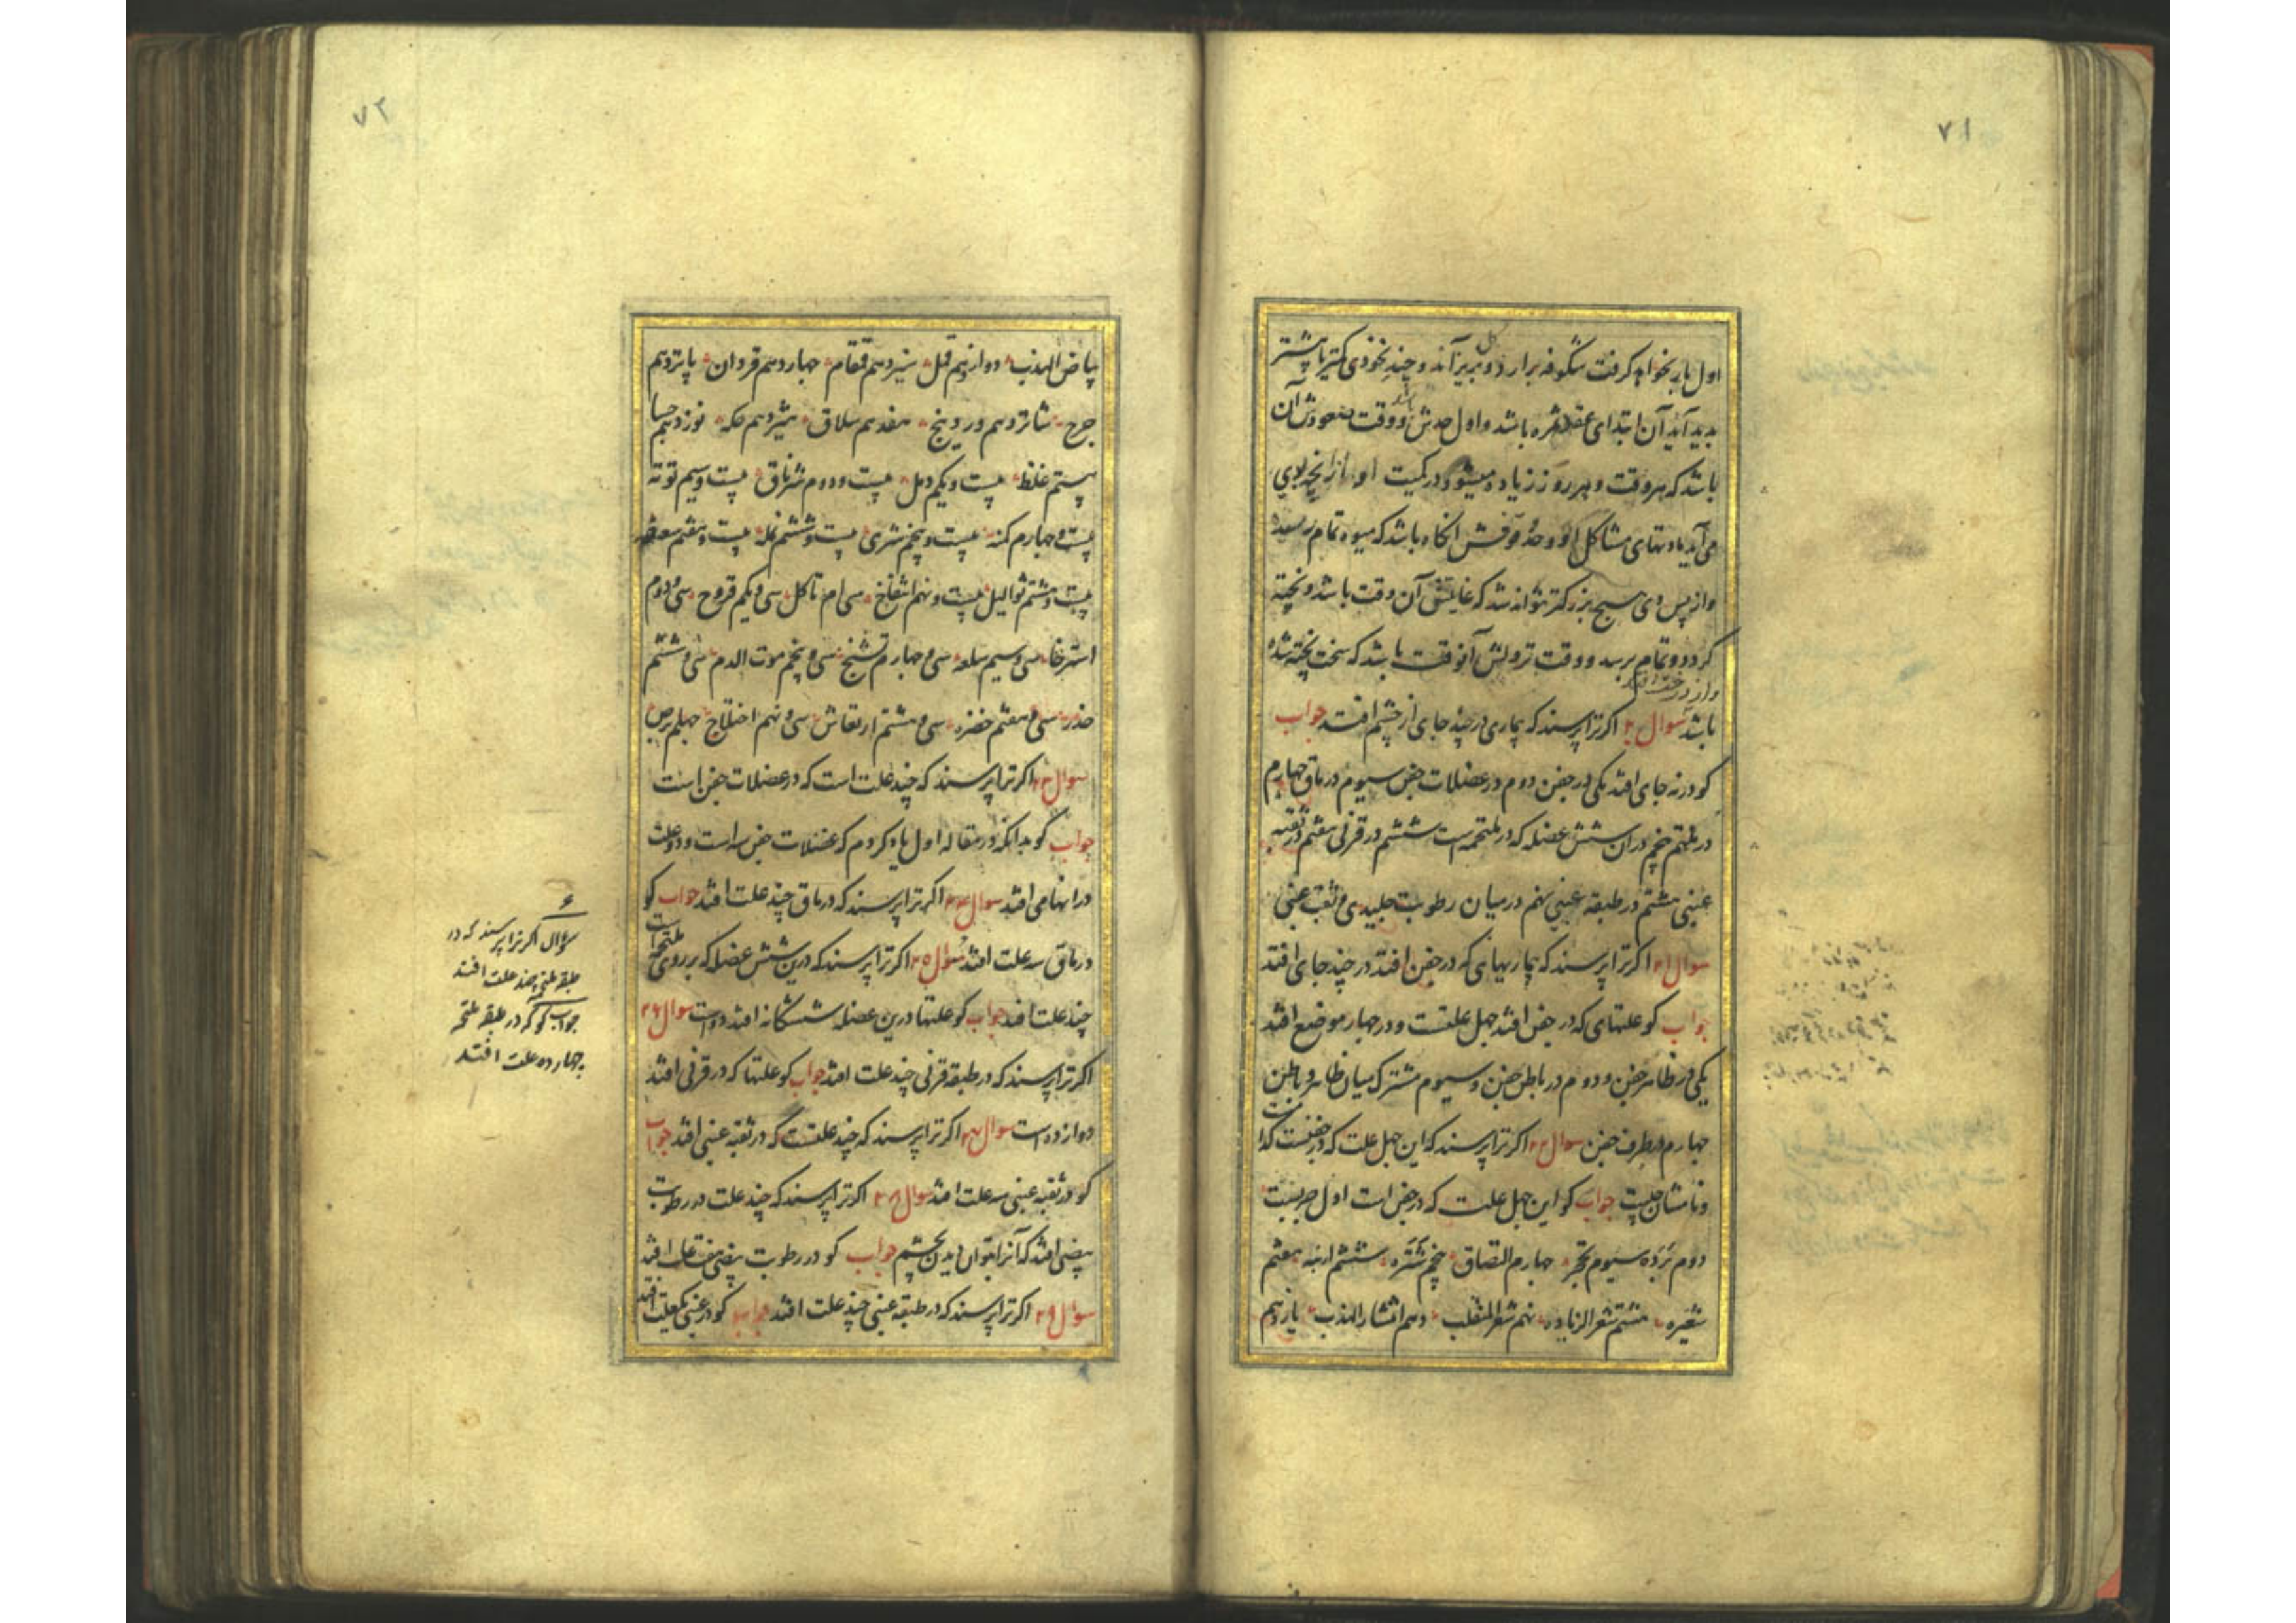 ۷۱
اول بار بخواهد کرفت شکوفه برارد و بریزاند و چند نخودی کمتر یا بیشتر
کل
بدید آید آن ابتدای عقد ثمره باشد و اول حدش و وقت صعودش آن
باشد
باشد که هر وقت و هر روز زیاده میشود در کمیت او از انچه بدو
می آید مادتهای مشاکل او و حد وقفش انکاه باشد که میوه تمام رسد
و از پس وی هیچ بزرکتر نتواند شد که غایتش آن وقت باشد و پخته
کردد و تمام برسد و وقت نزولش آنوقت باشد که سخت پخته شده
و از درخت افتد
باشد سوال ۲۰ اکر ترا پرسند که بیماری در چند جای از چشم افتد جواب
کو در نه جای افتد یکی در جفن دوم در عضلات جفن سیوم در ماق چهارم
در ملتحم پنجم در ان شش عضله که در ملتحمه است ششم در قرنی هفتم در ثقبه
عنبی هشتم در طبقه عنبی نهم در میان رطوبت جلیدی و ثقب عنبی
سوال ۲۱ اکر ترا پرسند که بیماریهای که در جفن افتد در چند جای افتد
جواب کو علتهای که در جفن افتد چهل علتست و در چهار موضع افتد
یکی در ظاهر جفن و دوم در باطن جفن و سیوم مشترک میان ظاهر و باطن
چهارم در طرف جفن سوال ۲۲ اکر ترا پرسند که این چهل علت که در جفنست کدا
ست
و نامشان چیست جواب کو این چهل علت که در جفن است اول جربست
دوم برده سیوم تحجر چهارم التصاق پنجم شتره ششم ارنبه هفتم
شعیره هشتم شعر الزیاده نهم شعر المنقلب دهم انتشار الهدب یازدهم
۷۲
بیاض الهدب دوازدهم قمل سیزدهم قمقام چهاردهم قردان پانزدهم
جرح شانزدهم وردینج هفدهم سلاق هیژدهم حکه نوزدهم جسا
بیستم غلظ بیست و یکم دمل بیست و دوم شرناق بیست و سیم توته
بیست و چهارم کمنه بیست و پنجم شری بیست و ششم نمله بیست و هفتم سعفه
بیست و هشتم ثوالیل بیست و نهم انتفاخ سی ام تاکل سی و یکم قروح سی و دوم
استرخا سی و سیم سلعه سی و چهارم تشنج سی و پنجم موت الدم سی و ششم
خدر سی و هفتم خضره سی و هشتم ارتعاش سی و نهم اختلاج چهلم برص
سوال ۲۳ اکر ترا پرسند که چند علت است که در عضلات جفن است
جواب کو بدانکه در مقاله اول یاد کردم که عضلات جفن سه است و دو علت
در انها می افتد سوال ۲۴ اکر ترا پرسند که در ماق چند علت افتد جواب کو
در ماق سه علت افتد سوال ۲۵ اکر ترا پرسند که درین شش عضله که بر روی
ملتحمه است
چند علت افتد جواب کو علتها درین عضله ششکانه افتد دو است سوال ۲۶
اکر ترا پرسند که در طبقه قرنی چند علت افتد جواب کو علتها که در قرنی افتد
دوازده است سوال ۲۷ اکر ترا پرسند که چند علتست که در ثقبه عنبی افتد جواب
کو در ثقبه عنبی سه علت افتد سوال ۲۸ اکر ترا پرسند که چند علت در رطوبت
بیضی افتد که آنرا بتوان دیدن بچشم جواب کو در رطوبت بیضی هفت علت افتد
سوال ۲۹ اکر ترا پرسند که در طبقه عنبی چند علت افتد جواب کو در عنبی یک علت افتد
سؤال اکر ترا پرسند که در
طبقه ملتحمه چند علت افتد
جواب کو که در طبقه ملتحمه
چهارده علت افتد